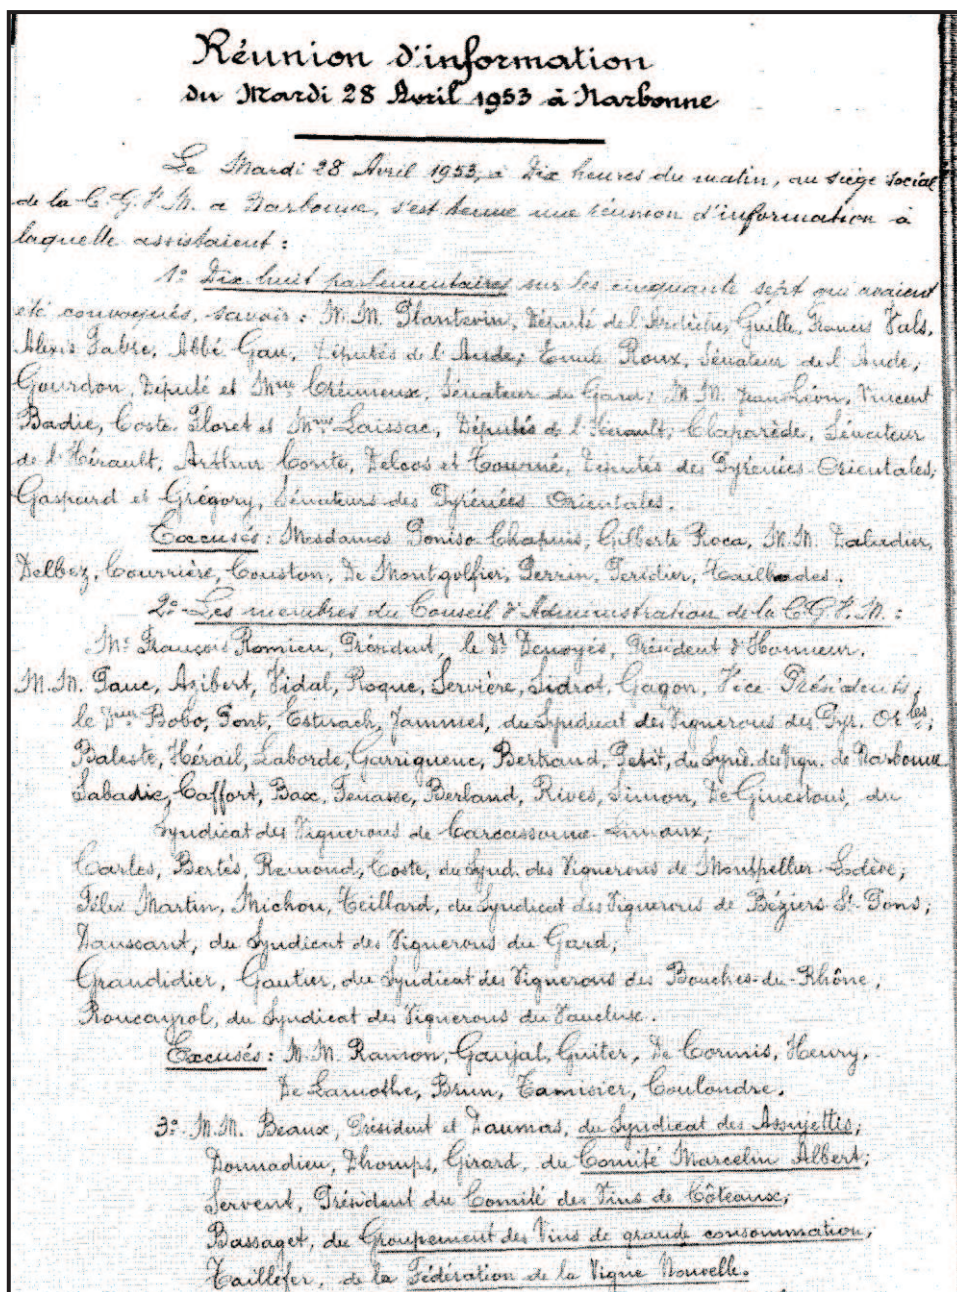 Réunion d'information
du Mardi 28 Avril 1953 à Narbonne
Le Mardi 28 Avril 1953, à Dix heures du matin, au siège social
de la C.G.V.M. a Narbonne, s'est tenue une réunion d'information à
laquelle assistaient :
1º Dix-huit parlementaires sur les cinquante sept qui avaient
été convoqués, savoir : M.M. Plantevin, Député de l'Ardèche, Guille, Francis Vals,
Alexis Fabre, Abbé Gau, Députés de l'Aude; Emile Roux, Sénateur de l'Aude;
Gourdon, Député et Mme Crémieux, Sénateur du Gard; M.M. Jean Léon, Vincent
Badie, Coste-Floret et Mme Laissac, Députés de l'Hérault; Claparède, Sénateur
de l'Hérault; Arthur Conte, Delcos et Tourné, Députés des Pyrénées-Orientales;
Gaspard et Grégory, Sénateurs des Pyrénées Orientales.
Excusés : Mesdames Poinso Chapuis, Gilberte Roca, M.M. Daladier,
Delbez, Courrière, Couston, De Montgolfier, Perrin, Péridier, Tailhades.
2º- Les membres du Conseil d'Administration de la C.G.V.M. :
Mr François Romieu, Président, le Dr Benoyés, Président d'Honneur,
M.M. Pauc, Azibert, Vidal, Roque, Servière, Sidrot, Gagon, Vice-Présidents;
le Bobo, Pont, Estirach, Jammes, du Syndicat des Vignerons des Pyr. Orles;
Baleste, Hérail, Laborde, Garriguenc, Bertrand, Petit, du Synd. des Vign. de Narbonne
Sabadie, Caffort, Bax, Tenasse, Berland, Rives, Simon, De Ginestous, du
Syndicat des Vignerons de Carcassonne-Limoux;
Carles, Bertés, Remond, Coste, du Synd. des Vignerons de Montpellier-Lodève;
Félix Martin, Michou, Teillard, du Syndicat des Vignerons de Béziers-St-Pons;
Daussant, du Syndicat des Vignerons du Gard;
Grandidier, Gautier, du Syndicat des Vignerons des Bouches-du-Rhône,
Roucayrol, du Syndicat des Vignerons du Vaucluse.
Excusés : M.M. Ramon, Gaujal, Guiter, De Cormis, Henry,
De Lamothe, Brun, Tamisier, Coulondre.
3º- M.M. Beaux, Président et Daumas, du Syndicat des Assujettis;
Donnadieu, Dhomps, Girard, du Comité Marcelin Albert;
Servent, Président du Comité des Vins de Côteaux;
Bassaget, du Groupement des Vins de grande consommation;
Taillefer, de la Fédération de la Vigne Nouvelle.